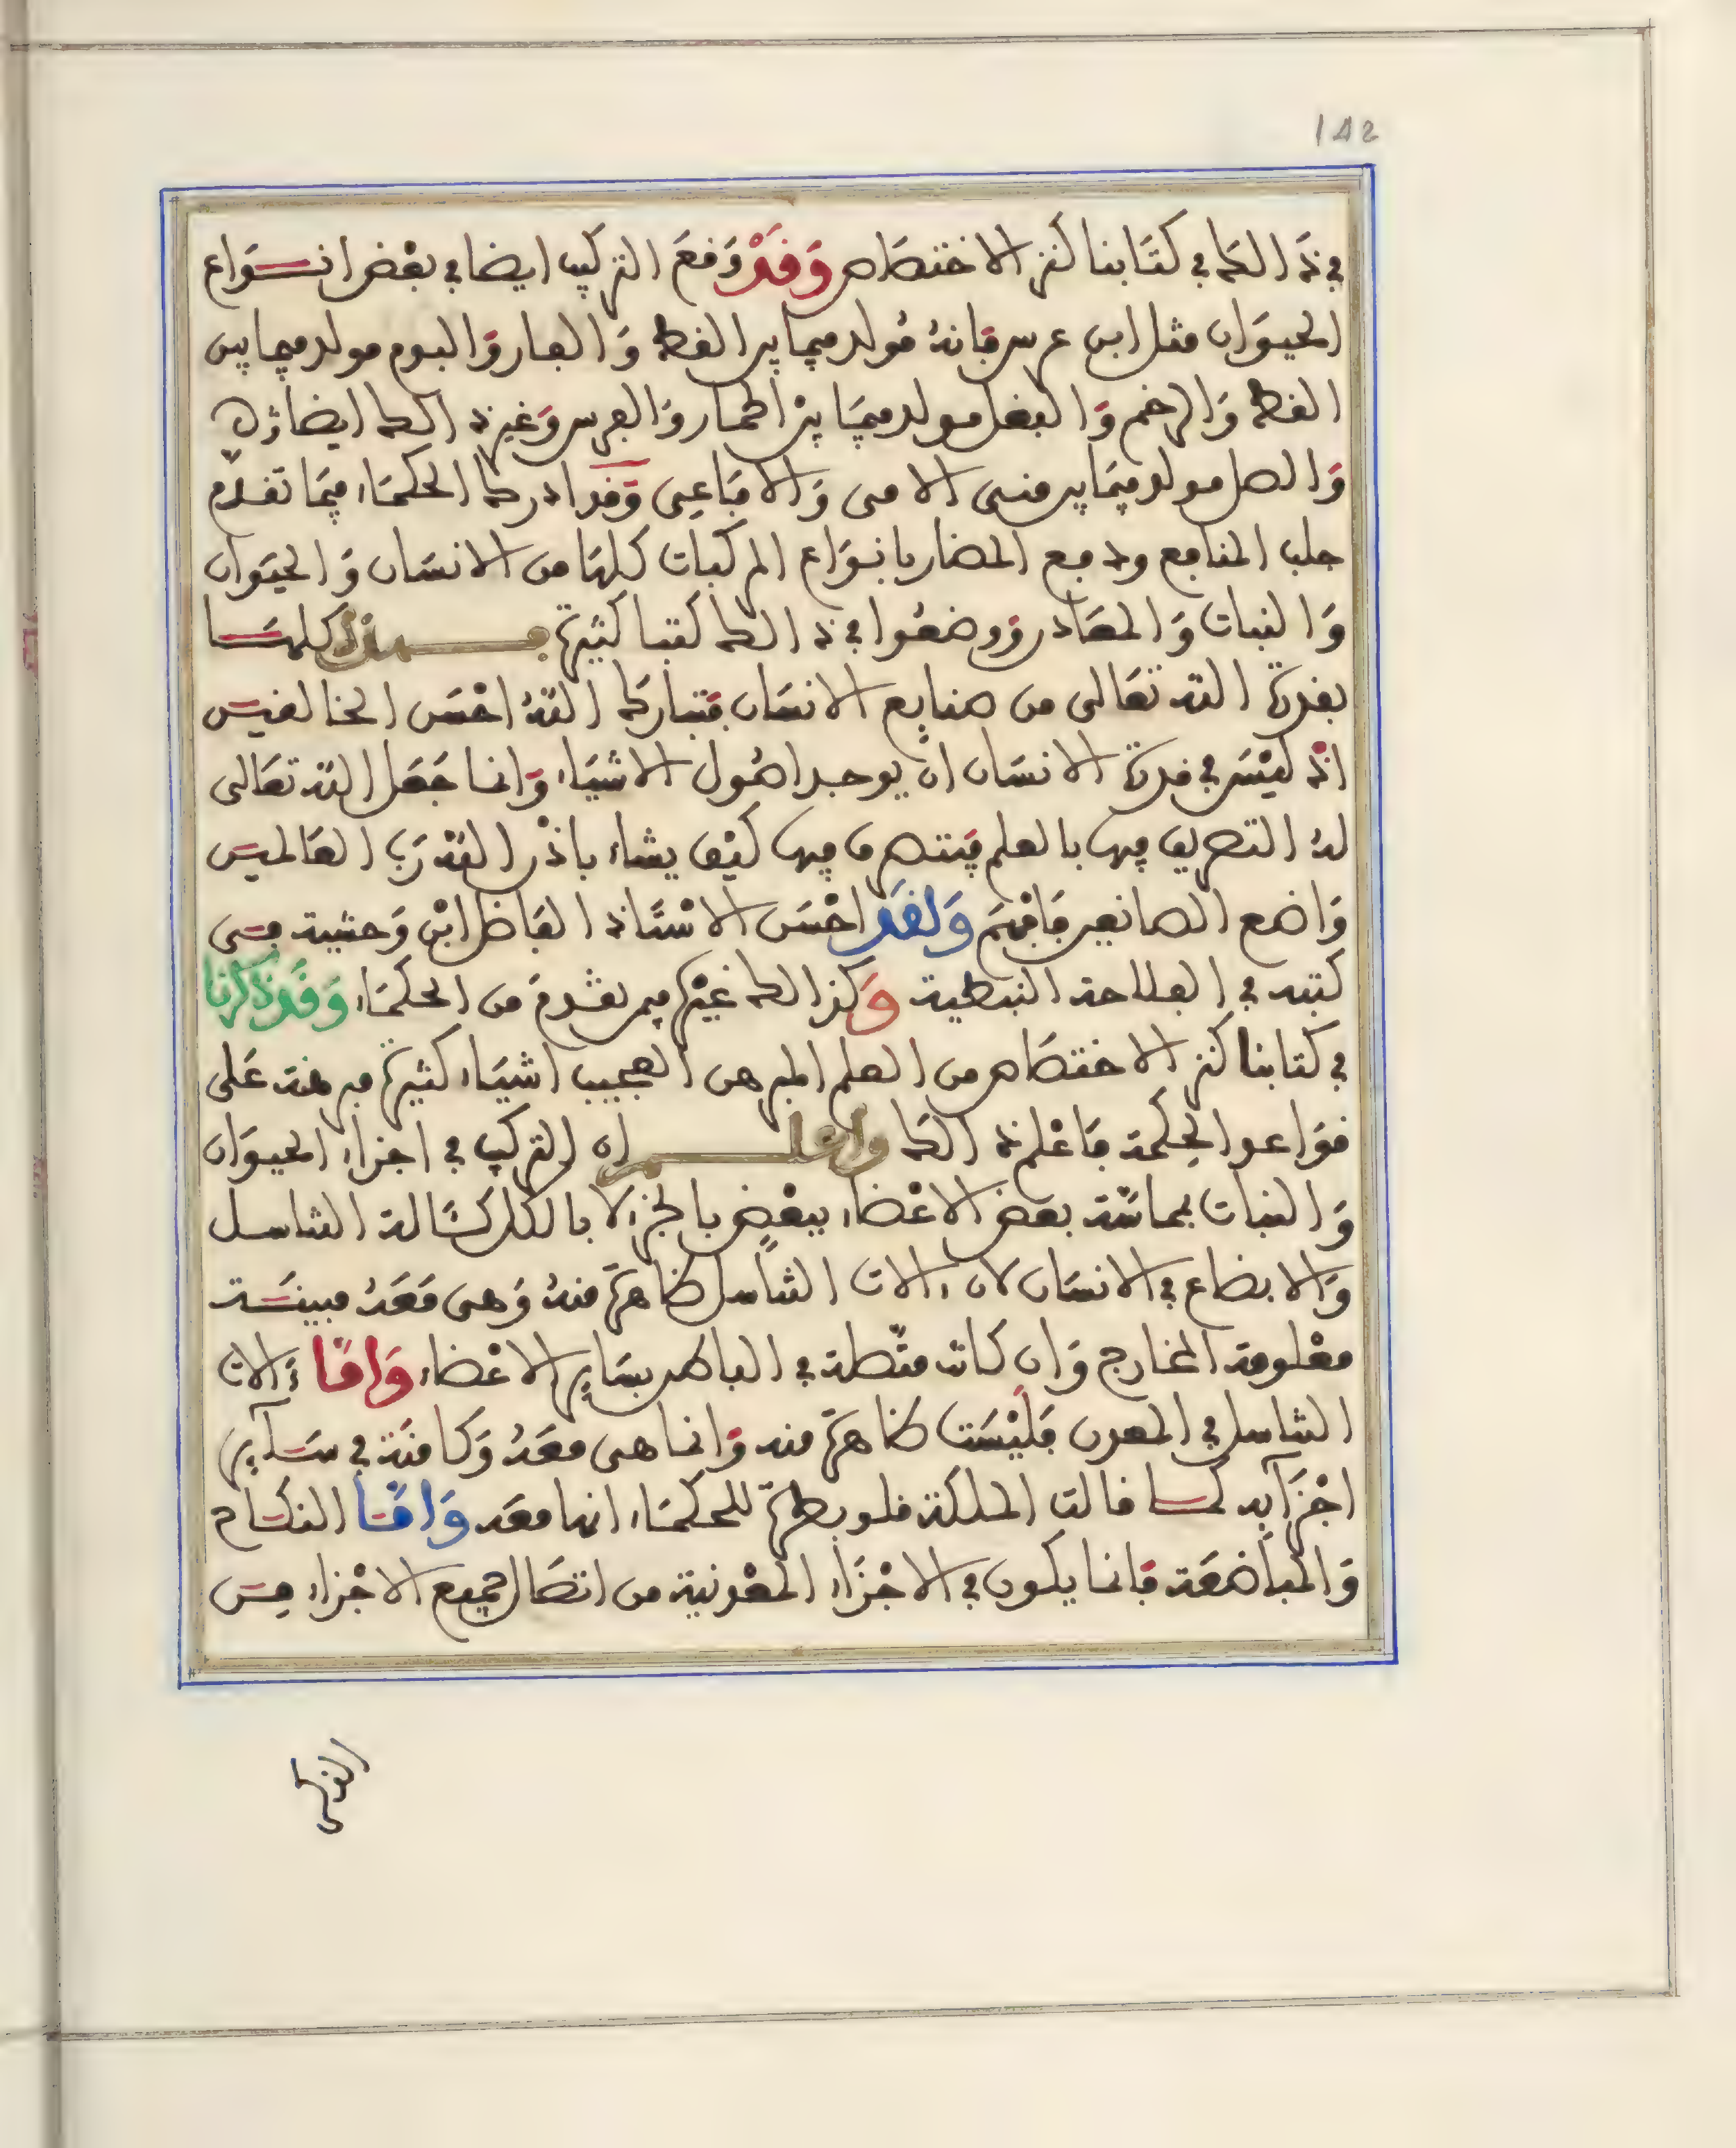 142
في ذالك في كتابنا كنز الاختصاص وَقَدْ وَقعَ التركيب ايضا في بعْض انـواع
الحيوان مثل ابن عرس فانهُ مُولد فيما بين القط وَالفار وَالبوم مولد فيما بين
القط وَالرخم وَالبغل مولد فيمَا بين الحمار وَالفرس وَغير ذالك ايضا
وَالصل مولد فيمَا بين منسى الافاعى وَقد ادرك الحكمَاء فيمَا تقدّم
جلب المنافع ودفع المضار بانواع المركبات كلهَا من الانسَان وَالحيَوان
وَالنبات وَالمعَادن ووضعُوا في ذالك كتبا كثيرة فهذه كلهَا
بقدرة الله تعَالى من صنايع الانسَان فتبارَك اللهُ احْسَن الخالقين
اذ ليْسَ في قدرة الانسَان ان يوجد اصُول الاشيَاء وَانما جَعَل الله تعَالى
لهُ التصريف فيها بالعلم فيَتصرف فيها كيْف يشاء باذْن الله رَبّ العَالمين
وَاضع الصانعين فافْهَم وَلقَد احْسَن الاسْتَاذ الفَاضل ابْن وَحشية في
كتبه في الفلاحة النبطية وَكذالك غيْره ممن تقدمَ من الحكمَاء وَقَد ذكرنا
في كتابنا كنز الاختصَاص من العلم المبرهن العجيب اشيَاء كثيرة مبرهنة عَلى
قوَاعد الحِكمة فاعْلم ذالك واعلم ان التركيب في اجزاء الحيوان
وَالنبات بمماسّة بعض الاعْضاء ببعْضٍ بالجزء لا بالكل كئَالة التناسل
وَالابضاع في الانسَان لان ءالات التناسل ظاهرةً منهُ وَهى مَعَهُ مبينَة
معْلومة المخارج وَان كانت متّصلة في الباطن بسَاير الاعْضاء وَامَّا ءَالات
التناسل في المعدن فليْسَت ظاهرةً منه وَانما هى معَهُ وَكامنَة في سَآير
اجْزآيه كما قالت الملكة قلوبطرة للحكمَاء انها معَه وَامَّا النكَاح
وَالمباضعَة فانما يكون في الاجْزَاء المعْدنية من اتصَال جميع الاجْزاء من